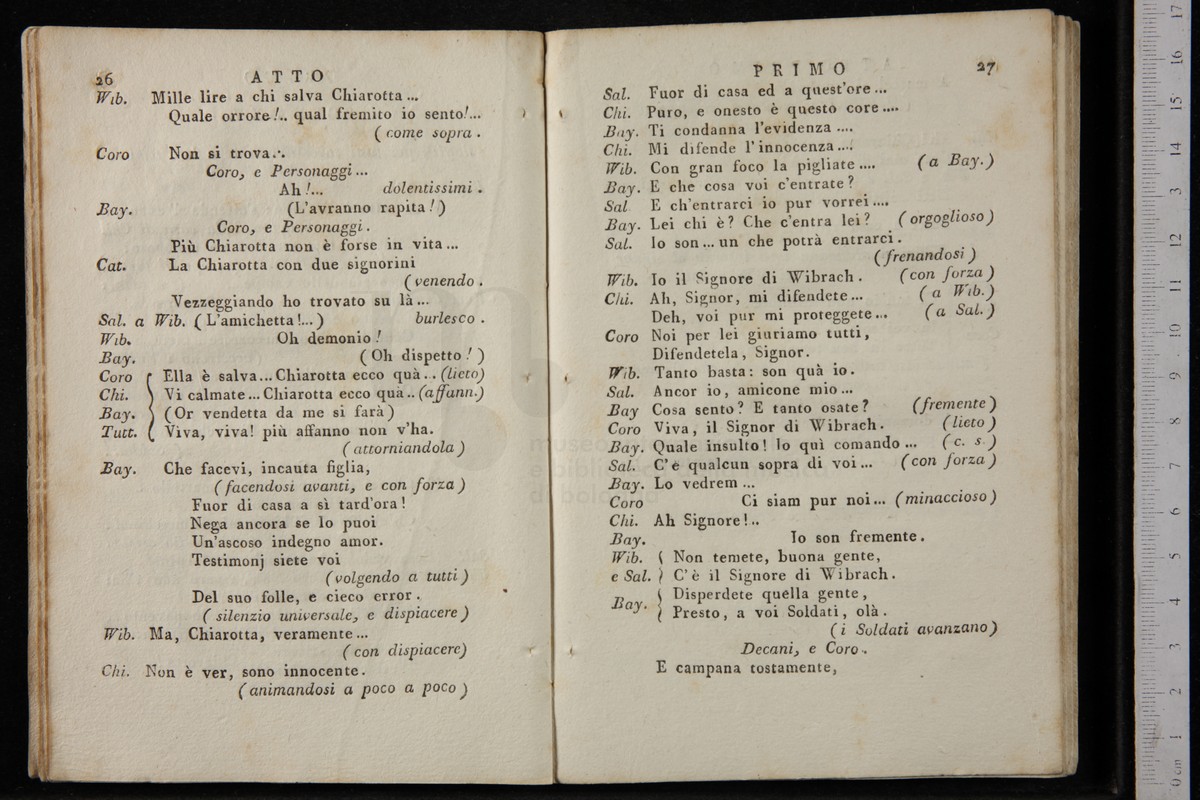 26 ATTO
Wib. Mille lire a chi salva Chiarotta ...
Quale orrore!.. qual fremito io sento!...
( come sopra .
Coro Non si trova...
Coro, e Personaggi ...
Ah!... dolentissimi .
Bay. (L'avranno rapita!)
Coro, e Personaggi .
Più Chiarotta non è forse in vita ...
Cat. La Chiarotta con due signorini
( venendo .
Vezzeggiando ho trovato su là ...
Sal. a Wib. ( L'amichetta!... ) burlesco .
Wib. Oh demonio!
Bay. ( Oh dispetto! )
Coro Ella è salva... Chiarotta ecco quà .. (lieto)
Chi. Vi calmate ... Chiarotta ecco quà .. (affann.)
Bay. ( Or vendetta da me si farà )
Tutt. Viva, viva! più affanno non v'ha.
( attorniandola )
Bay. Che facevi, incauta figlia,
( facendosi avanti, e con forza )
Fuor di casa a sì tard'ora!
Nega ancora se lo puoi
Un'ascoso indegno amor.
Testimonj siete voi
( volgendo a tutti )
Del suo folle, e cieco error .
( silenzio universale, e dispiacere )
Wib. Ma, Chiarotta, veramente ...
( con dispiacere)
Chi. Non è ver, sono innocente.
( animandosi a poco a poco )
PRIMO 27
Sal. Fuor di casa ed a quest'ore ...
Chi. Puro, e onesto è questo core ....
Bay. Ti condanna l'evidenza ....
Chi. Mi difende l'innocenza ....
Wib. Con gran foco la pigliate .... ( a Bay. )
Bay. E che cosa voi c'entrate?
Sal E ch'entrarci io pur vorrei ....
Bay. Lei chi è? Che c'entra lei? ( orgoglioso )
Sal. Io son ... un che potrà entrarci .
( frenandosi )
Wib. Io il Signore di Wibrach . (con forza )
Chi. Ah, Signor, mi difendete ... ( a Wib. )
Deh, voi pur mi proteggete ... ( a Sal. )
Coro Noi per lei giuriamo tutti,
Difendetela, Signor.
Wib. Tanto basta: son quà io.
Sal. Ancor io, amicone mio ...
Bay Cosa sento? E tanto osate? (fremente )
Coro Viva, il Signor di Wibrach . ( lieto )
Bay. Quale insulto! Io quì comando ... ( c. s. )
Sal. C'è qualcun sopra di voi ... (con forza )
Bay. Lo vedrem ...
Coro Ci siam pur noi ... ( minaccioso )
Chi. Ah Signore!..
Bay. Io son fremente.
Wib. Non temete, buona gente,
e Sal. C'è il Signore di Wibrach.
Bay. Disperdete quella gente,
Presto, a voi Soldati, olà.
( i Soldati avanzano )
Decani, e Coro.
E campana tostamente,